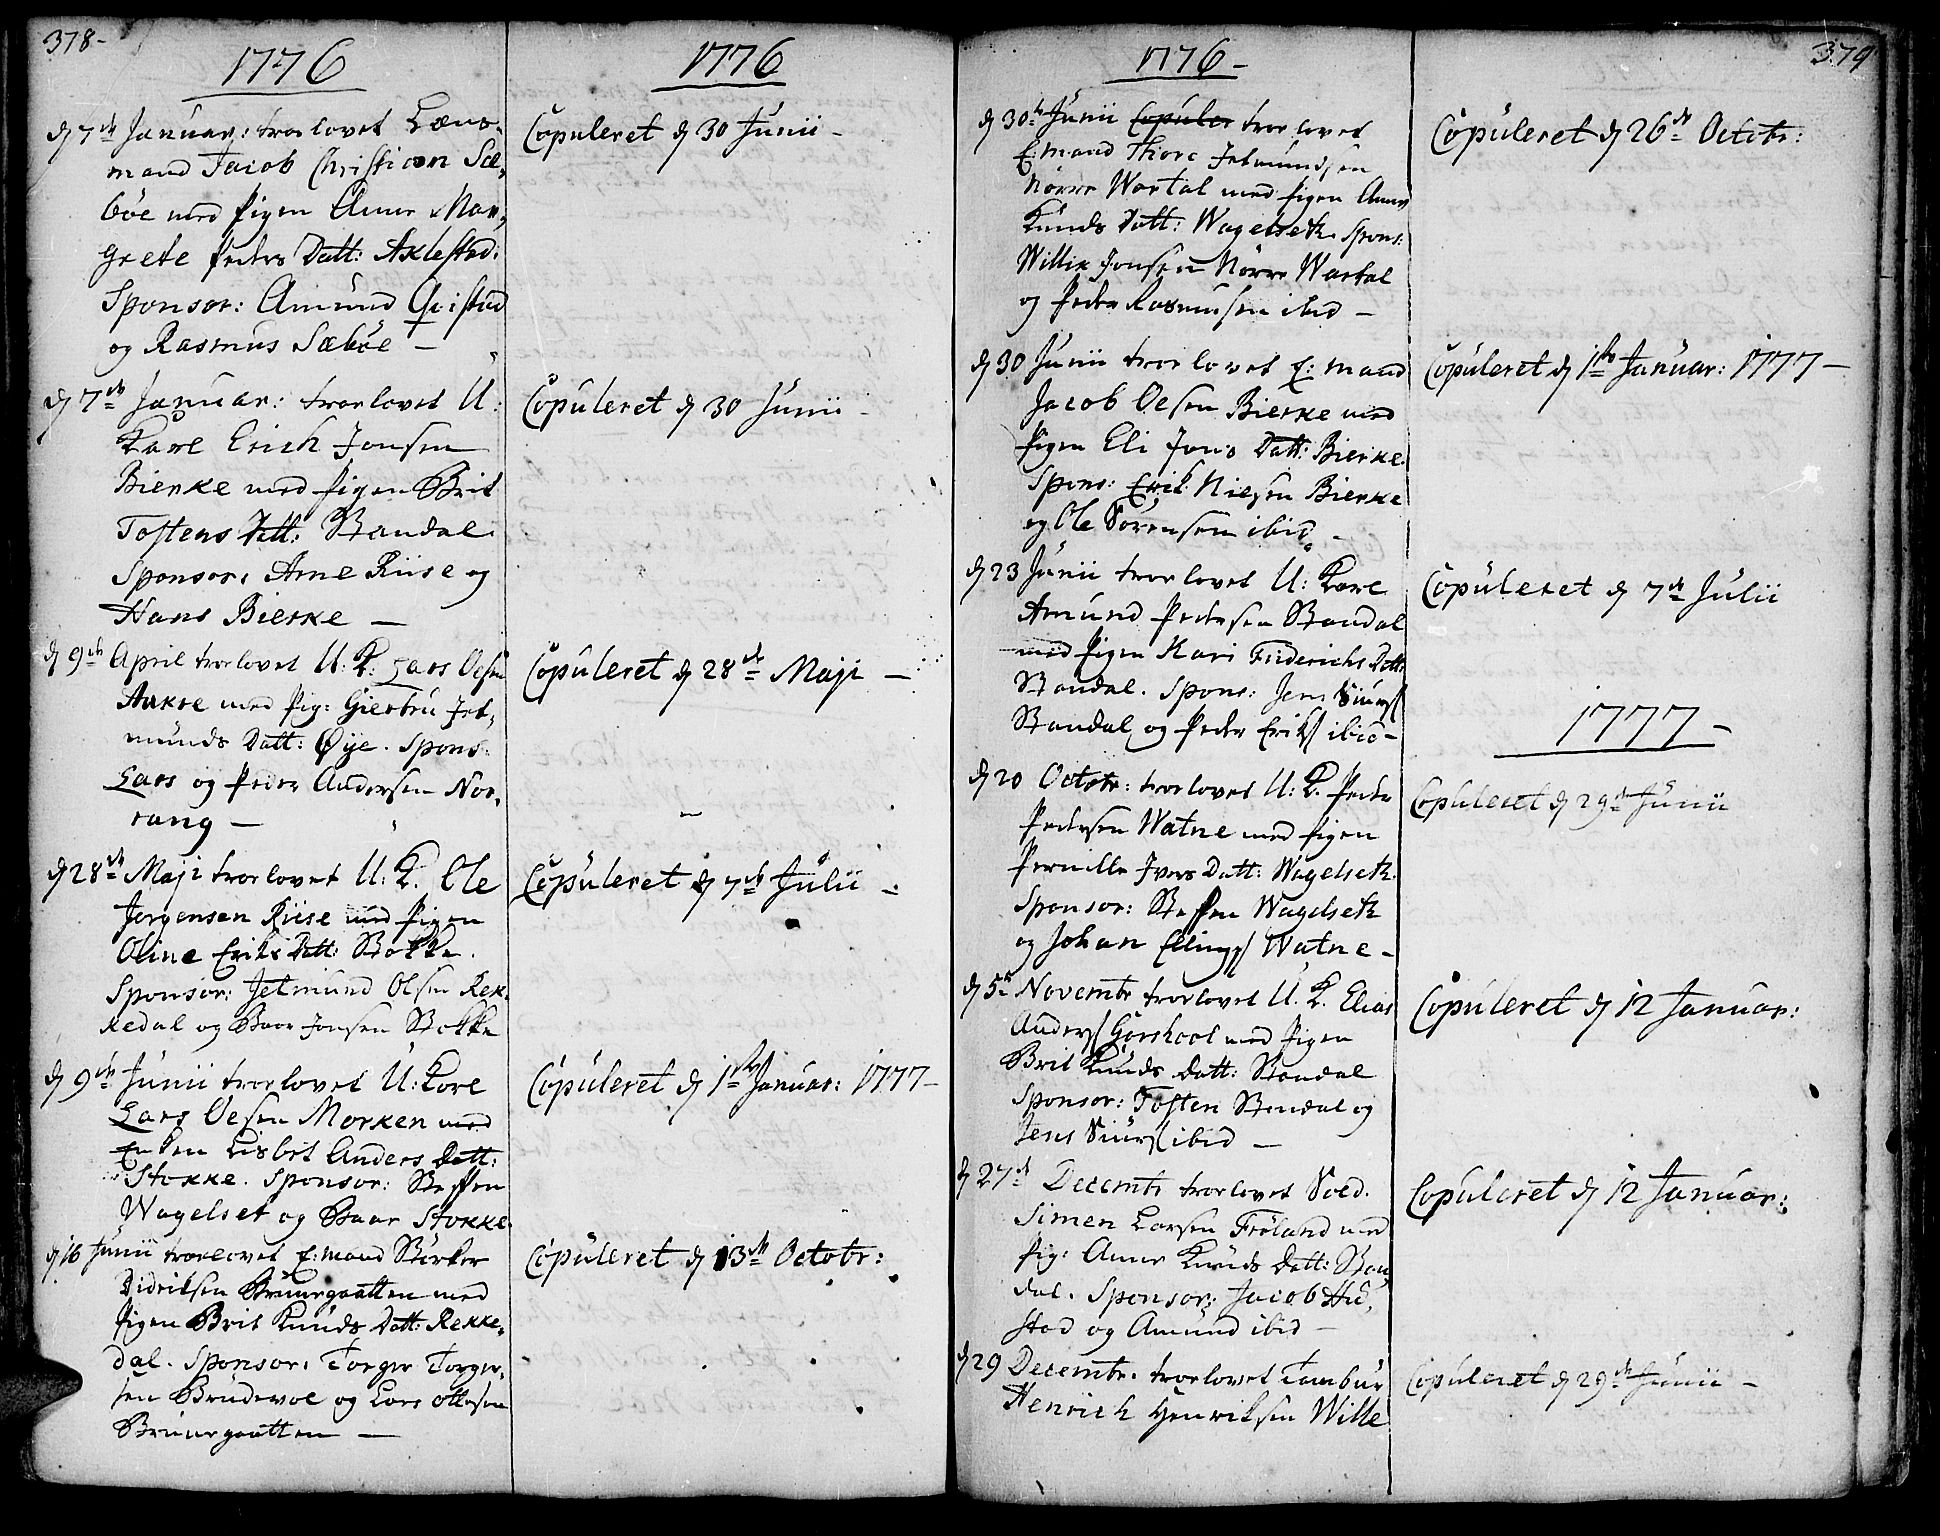 378-
1776
d 7de Januar: trorlovet Læns-
mand Jacob Christian Sæ-
böe med Pigen Anne Mar-
grete Peders Datt: Aklestad.
Sponsor: Amund Qvistad
og Rasmus Sæböe -
d 7de Januar: trorlovet U:
Karl Erich Jonsen
Bierke med Pigen Brit
Tostens Datt: Standal
Sponsor: Arne Riise og
Hans Bierke -
d 9de April trorlovet U: K: Lars Olsen
Aakre med Pig: Giertru Jet-
munds Datt: Øije. Spons:
Lars og Peder Andersen Nor-
rang -
d 28de Maji trorlovet U: K. Ole
Jorgensen Riise med Pigen
Oline Eriks Datt: Stokke.
Sponsor: Jetmund Olsen Rek-
kedal og Baar Jonsen Stokke
d 9de Junii trorlovet U: Karl
Lars Olsen Morken med
Enken Lisbet Anders Datt:
Stokke. Sponsor: Steffen
Wagelset og Baar Stokke.
d 16 Junii trorlovet E: mand Störker
Didriksen Bruunegaatten med
Pigen Brit Knuds Datt: Rekke-
dal. Sponsor: Torger Torger-
sen Brudevol og Lars Ottesen
Bruunegaatten -
1776
Copuleret d 30 Junii -
Copuleret d 30 Junii -
Copuleret d 28de Maji -
Copuleret d 7de Julii -
Copuleret d 1ste Januar: 1777 -
Copuleret d 13de Octobr:
1776 -
d 30te Junii Copuler trorlovet
E: mand Thore Jetmundsen
Nörre Wartal med Pigen Anne
Knuds Datt: Wagelsetk. Spons:
Willik Jonsen Nörre Wartal
og Peder Rasmussen ibid -
d 30 Junii trorlovet E: mand
Jacob Olsen Bierke med
Pigen Eli Jons Datt: Bierke.
Spons: Erik Nielsen Bierke
og Ole Sörensen ibid -
d 23 Junii trorlovet U: Karl
Amund Pedersen Standal
med Pigen Kari Friderichs Datt:
Standal. Spons: Jens Siurs
Standal og Peder Eriks ibid -
d 20 Octobr: trorlovet U: K. Peder
Pedersen Watne med Pigen
Pernille Ivers Datt: Wagelsetk.
Sponsor: Steffen Wagelsetk
og Johan Ellings Watne -
d 5te Novembr trorlovet U. K. Elias
Anders Görshool med Pigen
Brit Knuds Datt: Standal
Sponsor: Tosten Standal og
Jens Siurs ibid -
d 27de Decembr trorlovet Sold.
Simen Larsen Fröland med
Pig: Anne Knuds Datt: Stan-
dal. Sponsor: Jacob Hu-
stad og Amund ibid -
d 29 Decembr. trorlovet Tambur
Henrich Henriksen Wille
379
Copuleret d 26de Octobr:
Copuleret d 1ste Januar: 1777 -
Copuleret d 7de Julii
1777 -
Copuleret d 29de Junii
Copuleret d 12 Januar:
Copuleret d 12 Januar:
Copuleret d 29de Junii -